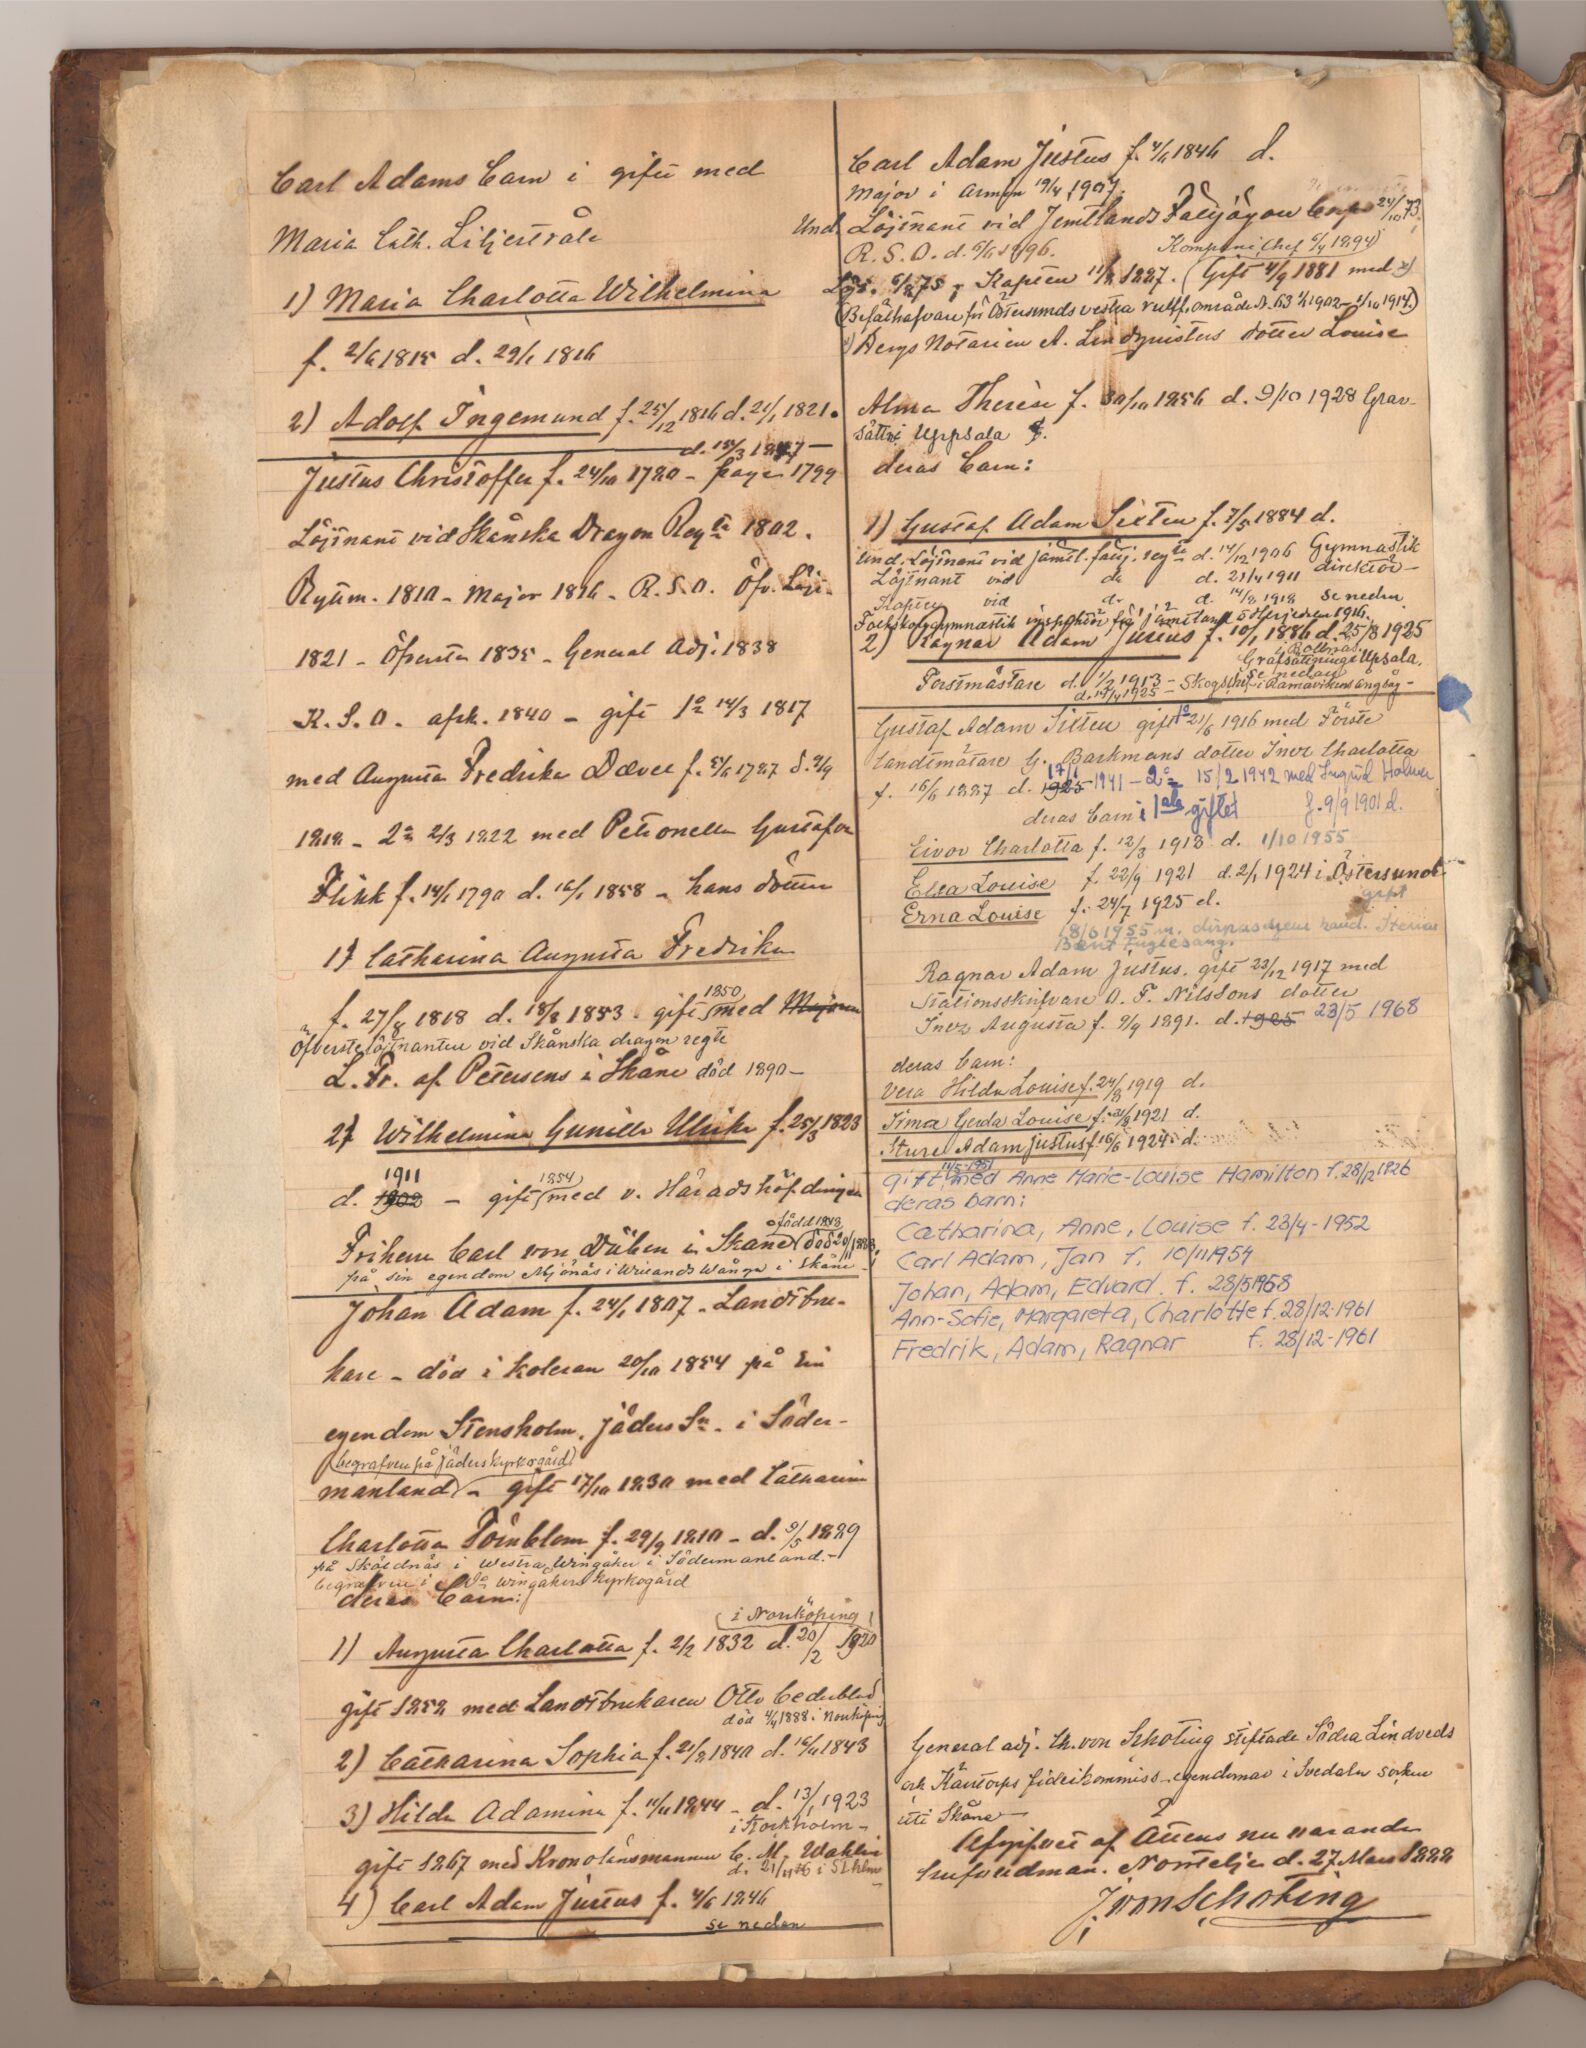 Carl Adams barn i gifte med
Maria Cath. Liljestråle
1) Maria Charlotta Wilhelmina
f. 2/6 1815 d. 29/1 1816
2) Adolf Ingemund f. 25/12 1816 d. 21/1 1821.
d. 1847 —
Justus Christoffer f. 24/10 1780 – page 1799
Löjtnant vid Skånska Dragon Regte 1802.
Ryttm. 1810 – Major 1816 – R.S.O. Öfv. Löjt.
1821 – Öfverste 1835 – General Adj: 1838
K.S.O. afsk. 1840 – gift 1o 14/3 1817
med Augusta Fredrika Dœvel f. 1787 d. 2/9
1818 – 2o 2/3 1822 med Petronella Gustafva
Flikk f. 14/1 1790 d. 16/1 1858 – hans döttrar
1) Catharina Augusta Fredrika
1850
f. 27/8 1818 d. 18/8 1853 gift med Majoren
Öfverstelöjtnanten vid Skånska dragon regte
L. Fr. af Petersens i Skåne död 1890 –
2) Wilhelmina Gunilla Ulrika f. 25/3 1823
1911 1854
d. 1902 – gift med v. Häradshöfdingen
född 1813
Friherre Carl von Düben i Skåne död 20/11
på sin egendom Mjönäs i Willands Wånga i Skåne
Johan Adam f. 24/1 1807 – Landtbru-
kare – död i koleran 20/10 1854 på sin
egendom Stensholm, Jäders Sn. i Söder-
(begrafven på Jäders kyrkogård)
manland – gift 17/10 1830 med Catharina
Charlotta Törnblom f. 29/9 1810 – d. 9/5 1889
på Sköldnäs i Westra Wingåker i Södermanland. –
begrafven i Wingåkers kyrkogård
deras barn:
(i Norrköping)
1) Augusta Charlotta f. 2/2 1832 d. 20/2 1920
gift 1852 med Landtbrukaren Otto Cederblad
död 4/4 1888 i Norrköping
2) Catharina Sophia f. 21/2 1840 d. 16/4 1843
3) Hilda Adamina f. 11/11 1844 – d. 13/1 1923
i Stockholm –
gift 1867 med Kronolänsmannen C. M. Wahlin
d. 21/11 16 i Sthlm
4) Carl Adam Justus f. 4/6 1846
se nedan
Carl Adam Justus f. 4/6 1846 d.
Major i Armén 19/4 1907.
Und. Löjtnant vid Jemtlands Fältjägare Corps 24/10 73.
R.S.O. d. 6/6 1896. Kompani Chef 6/4 1894
Löjt. 6/8 75, Kapten 11/2 1887. (Gift 4/9 1881 med x)
(Befälhafvare för Östersunds vestra rullf. område N. 63 1/1 1902 – 1/10 1914.)
x) Bergs Notarien A. Lindqvists dotter Louise
Alma Therèse f. 30/10 1856 d. 9/10 1928 Grav-
satt i Uppsala
deras barn:
1) Gustaf Adam Sixten f. 7/5 1884 d.
Und. Löjtnant vid Jämtl. fältj. regte d. 14/12 1906 Gymnastik
Löjtnant vid do d. 21/4 1911 direktör –
Kapten vid do d. 14/8 1918 se nedan
Folkskolegymnastik inspektör för Jämtland o Herjedalen 1916.
2) Ragnar Adam Justus f. 10/1 1886 d. 25/8 1925
i Bollnäs.
Grafsättning i Upsala.
se nedan
Forstmästare d. 1/2 1913 – Skogschef i Ramvikens ångsåg –
d. 14/4 1925 –
Gustaf Adam Sixten gift 1o 21/6 1916 med Förste
Landtmätare G. Barkmans dotter Inez Charlotta
f. 16/6 1887 d. 1925 17/1 1941 – 2o 15/2 1942 med Ingrid Holmer
deras barn i 1sta giftet f. 9/9 1901 d.
Eivor Charlotta f. 12/3 1918 d. 1/10 1955
Elsa Louise f. 22/9 1921 d. 2/1 1924 i Östersund
Erna Louise f. 24/7 1925 d. gift
18/6 1955 m.
Bent Englesang.
Ragnar Adam Justus. gift 22/12 1917 med
Stationsskrifvare O. F. Nilssons dotter
Inez Augusta f. 9/9 1891. d. 1925 23/5 1968
deras barn:
Vera Hilda Louise f. 24/8 1919 d.
Irma Gerda Louise f. 21/8 1921 d.
Sture Adam Justus f. 16/6 1924 d.
gift 14/5-1951 med Anne Marie-Louise Hamilton f. 28/12 1926
deras barn:
Catharina, Anne, Louise f. 23/4 - 1952
Carl Adam, Jan f. 10/11 1954
Johan, Adam, Edvard. f. 28/5 1958
Ann-Sofie, Margareta, Charlotte f. 28/12-1961
Fredrik, Adam, Ragnar f. 28/12-1961
General adj. Ch. von Schoting stiftade Södra Lindveds
och Kärrtorps fideikommiss-egendomar i Svedala socken
uti Skåne –
Afgifvet af Ättens nu varande
hufvudman. Norrtelje d. 27 Mars 1888
J. von Schoting